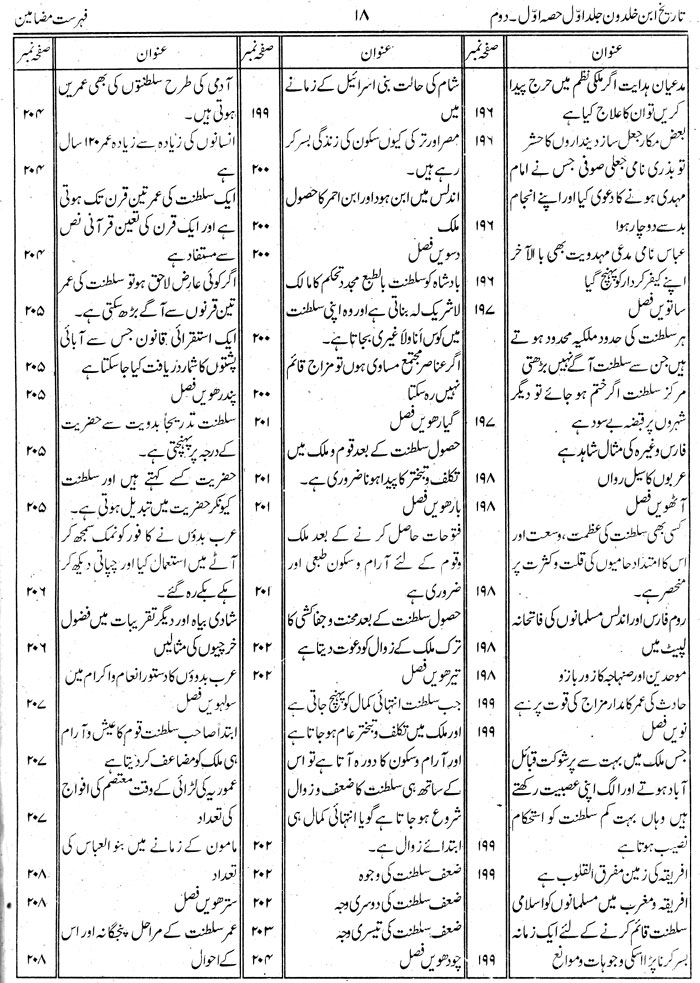 تاریخ ابن خلدون جلد اوّل حصہ اوّل۔ دوم
۱۸
فہرست مضامین
عنوان
صفحہ نمبر
مدعیان ہدایت اگر ملکی نظم میں حرج پیدا
کریں تو ان کا علاج کیا ہے ۱۹۶
بعض مکار جعل ساز دینداروں کا حشر ۱۹۶
تو بذری نامی جعلی صوفی جس نے امام
مہدی ہونے کا دعویٰ کیا اور اپنے انجام
بد سے دوچار ہوا ۱۹۶
عباس نامی مدعی مہدویت بھی بالآخر
اپنے کیفر کردار کو پہنچ گیا ۱۹۶
ساتویں فصل ۱۹۷
ہر سلطنت کی حدود ملکیہ محدود ہوتے
ہیں جن سے سلطنت آگے نہیں بڑھتی
مرکز سلطنت اگر ختم ہو جائے تو دیگر
شہروں پر قبضہ بے سود ہے ۱۹۷
فارس وغیرہ کی مثال شاہد ہے
عربوں کا سیل رواں ۱۹۸
آٹھویں فصل ۱۹۸
کسی بھی سلطنت کی عظمت، وسعت اور
اس کا امتداد حامیوں کی قلت و کثرت پر
منحصر ہے۔ ۱۹۸
روم فارس اور اندلس مسلمانوں کی فاتحانہ
لپیٹ میں ۱۹۸
موحدین اور صنہاجہ کا زور بازو ۱۹۸
حادث کی عمر کا مدار مزاج کی قوت پر ہے ۱۹۹
نویں فصل ۱۹۹
جس ملک میں بہت سے پرشوکت قبائل
آباد ہوتے اور الگ اپنی عصبیت رکھتے
ہیں وہاں بہت کم سلطنت کو استحکام
نصیب ہوتا ہے ۱۹۹
افریقہ کی زمین مفرق القلوب ہے ۱۹۹
افریقہ و مغرب میں مسلمانوں کو اسلامی
سلطنت قائم کرنے کے لئے ایک زمانہ
بسر کرنا پڑا اسکی وجوہات و موانع ۱۹۹
عنوان
صفحہ نمبر
شام کی حالت بنی اسرائیل کے زمانے
میں ۱۹۹
مصر اور تر کی کیوں سکون کی زندگی بسر کر
رہے ہیں۔ ۲۰۰
اندلس میں ابن ہود اور ابن احمر کا حصول
ملک ۲۰۰
دسویں فصل ۲۰۰
بادشاہ کو سلطنت بالطبع مجدد تحکم کا مالک
لاشریک لہ بناتی ہے اور وہ اپنی سلطنت
میں کوس أنا ولا غیری بجاتا ہے۔ ۲۰۰
اگر عناصر مجتمع مساوی ہوں تو مزاج قائم
نہیں رہ سکتا ۲۰۰
گیارھویں فصل ۲۰۱
حصول سلطنت کے بعد قوم و ملک میں
تکلف و تبختر کا پیدا ہونا ضروری ہے۔ ۲۰۱
بارھویں فصل ۲۰۱
فتوحات حاصل کرنے کے بعد ملک
و قوم کے لئے آرام و سکون طبعی اور
ضروری ہے ۲۰۱
حصول سلطنت کے بعد محنت و جفاکشی کا
ترک ملک کے زوال کو دعوت دیتا ہے ۲۰۲
تیرھویں فصل ۲۰۲
جب سلطنت انتہائی کمال کو پہنچ جاتی ہے
اور ملک میں تکلف و تبختر عام ہو جاتا ہے
اور آرام و سکون کا دور آتا ہے تو اس
کے ساتھ ہی سلطنت کا ضعف و زوال
شروع ہو جاتا ہے گویا انتہائی کمال ہی
ابتدائے زوال ہے۔ ۲۰۲
ضعف سلطنت کی وجوہ ۲۰۲
ضعف سلطنت کی دوسری وجہ ۲۰۲
ضعف سلطنت کی تیسری وجہ ۲۰۳
چودھویں فصل ۲۰۴
عنوان
صفحہ نمبر
آدمی کی طرح سلطنتوں کی بھی عمریں
ہوتی ہیں۔ ۲۰۴
انسانوں کی زیادہ سے زیادہ عمر ۱۲۰ سال
ہے ۲۰۴
ایک سلطنت کی عمر تین قرن تک ہوتی
ہے اور ایک قرن کی تعین قرآنی نص
سے مستفاد ہے ۲۰۴
اگر کوئی عارض لاحق ہو تو سلطنت کی عمر
تین قرنوں سے آگے بڑھ سکتی ہے۔ ۲۰۵
ایک استقرائی قانون جس سے آبائی
پشتوں کا شمار دریافت کیا جا سکتا ہے ۲۰۵
پندرھویں فصل ۲۰۵
سلطنت تدریجاً بدویت سے حضریت
کے درجہ پر پہنچتی ہے۔ ۲۰۵
حضریت کسے کہتے ہیں اور سلطنت
کیونکر حضریت میں تبدیل ہوتی ہے۔ ۲۰۵
عرب بدوؤں نے کافور کو نمک سمجھ کر
آٹے میں استعمال کیا اور چپاتی دیکھ کر
ہکے بکے رہ گئے۔ ۲۰۶
شادی بیاہ اور دیگر تقریبات میں فضول
خرچیوں کی مثالیں ۲۰۶
عرب بدوؤں کا دستور انعام و اکرام میں
سولہویں فصل ۲۰۷
ابتداً صاحب سلطنت قوم کا عیش و آرام
ہی ملک کو مضاعف کر دیتا ہے ۲۰۷
عموریہ کی لڑائی کے وقت معتصم کی افواج
کی تعداد ۲۰۷
مامون کے زمانے میں بنو العباس کی
تعداد ۲۰۸
سترھویں فصل ۲۰۸
عمر سلطنت کے مراحل پنجگانہ اور اس
کے احوال ۲۰۸